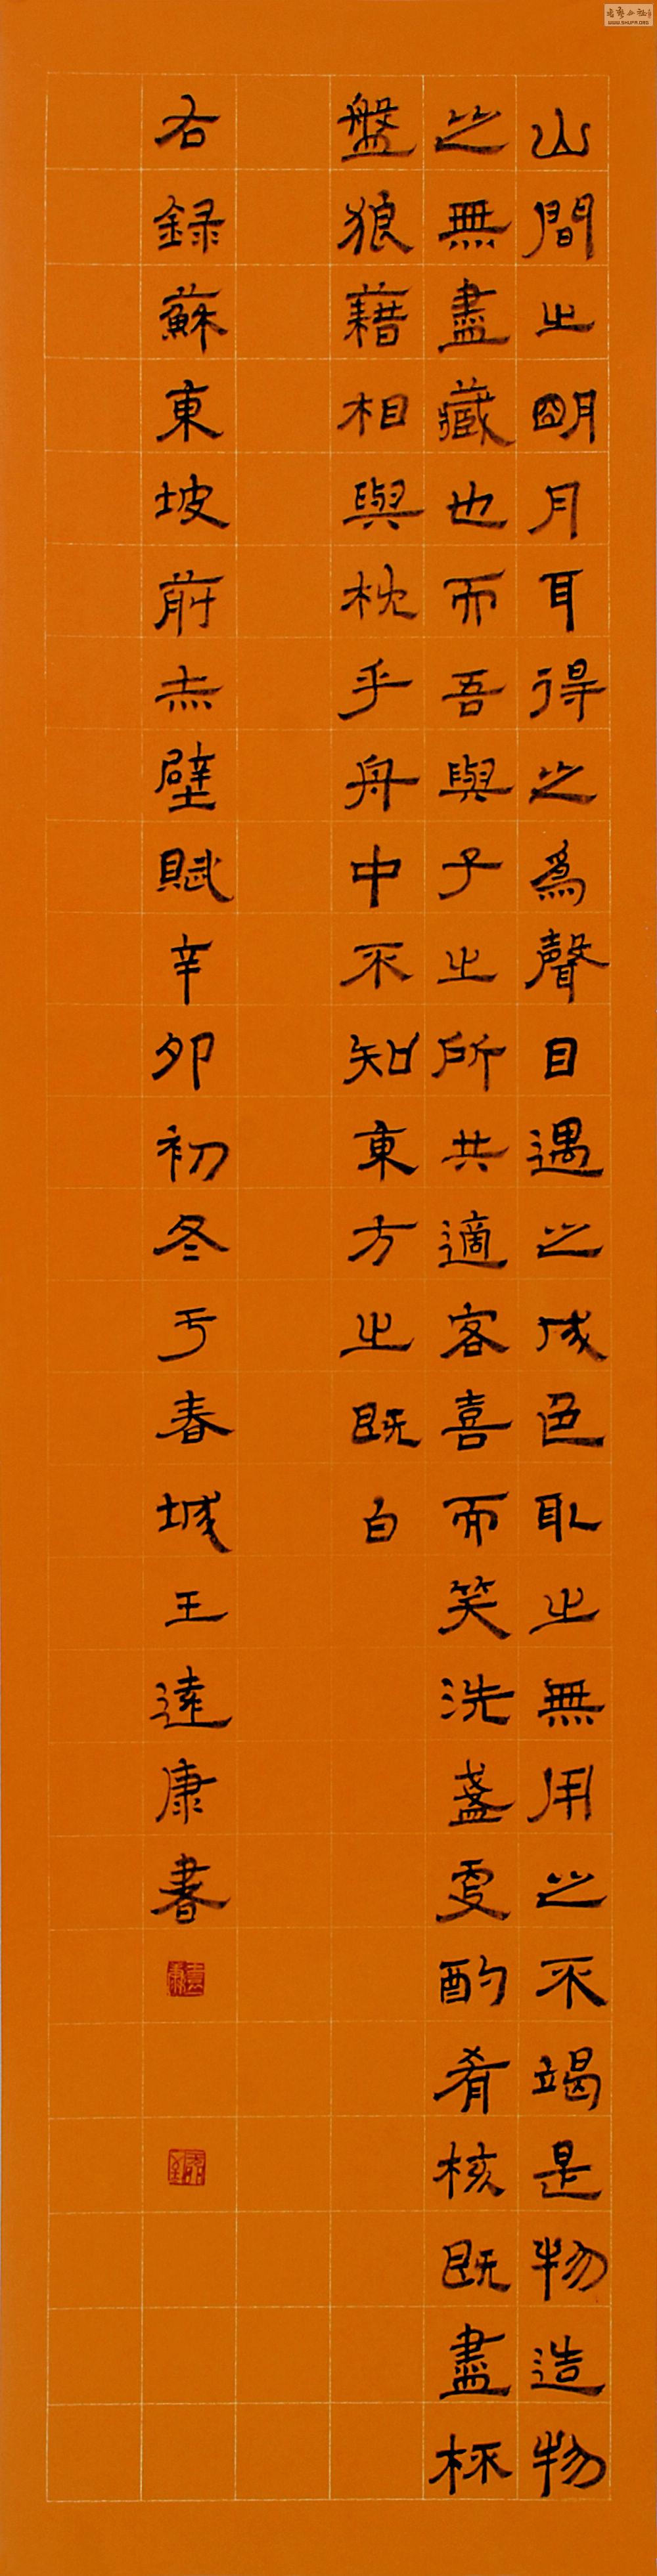 山間之朙月耳得之爲聲目遇之成色取之無用之不竭是物造物
之無盡藏也而吾與子之所共適客喜而笑洗盞更酌肴核既盡杯
盤狼藉相與枕乎舟中不知東方之既白
右録蘇東坡前赤壁賦辛卯初冬于春城王遠康書
WWW.SHUFA.ORG